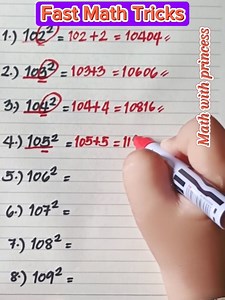 Fast Math Tricks
1.) 102² = 102 + 2 = 10404
2.) 103² = 103+3 = 10606
3.) 104² = 104+4 = 10816
4.) 105² = 105+5 = 11
5.) 106² =
6.) 107² =
7.) 108² =
8.) 109² =
Math with princess